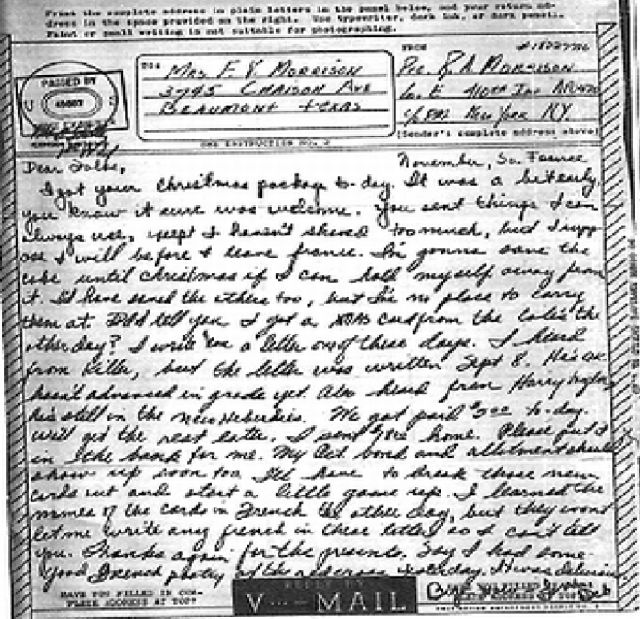 Print the complete address in plain letters in the panel below, and your return ad-
dress in the space provided on the right. Use typewriter, dark ink, or dark pencil.
Faint or small writing is not suitable for photographing.
PASSED BY
U S
TO:
Mrs F. V. Morrison
3745 Chaison Ave
Beaumont Texas
FROM
Pvc. R A Morrison
Co. E 410th Inf APO 470
New York N.Y.
(Sender's complete address above)
SEE INSTRUCTION NO. 2
Dear Folks,
November, So. France
I got your Christmas package to-day. It was a bit early,
you know it sure was welcome. You sent things I can
always use, except I haven't shaved too much, but I supp
ose I will before I leave france. I'm gonna save the
cake until Christmas if I can hold myself away from
it. I'd have saved the others too, but I've no place to carry
them at. Did I tell you I got a card from the the
other day? I write 'em a letter one of these days. I heard
from but the letter was written Sept 8. He
hasn't advanced in grade yet. Also heard from Harry
he's still in the New Heberdies. We got paid to-day.
we'll get the rest later. I sent home. Please put it
in the bank for me. My Oct bond and allotment should
show up soon too. I'll have to break those new
cards out and start a little game up. I learned the
names of the cards in French the other day, but they wont
let me write any french in these letters so I can't tell
you. Thanks again for the presents. Say I had some
good French pastry at the red cross yesterday. It was delicious
HAVE YOU FILLED IN COM-
PLETE ADDRESS AT TOP?
V···—MAIL
HAVE YOU FILLED IN COM-
PLETE ADDRESS AT TOP?